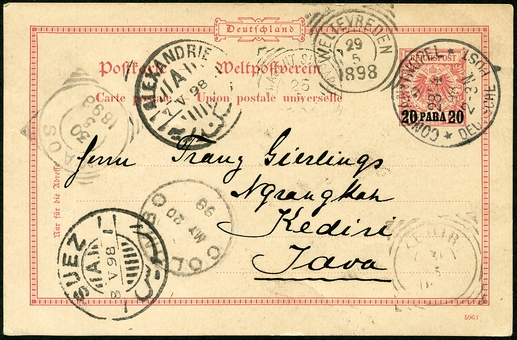 Deutschland
Postkarte Weltpostverein
Carte postale Union postale universelle
Nur für die Adresse
REICHSPOST
20 PARA 20
CONSTANTINOPEL 1 DEUTSCHE POST
ALEXANDRIE
V 98
WELTEVREDEN
29
5
1898
SUEZ
8 V 98
COLOMBO
MY
20
98
Herrn Franz Gierlings
Ngrangkah
Kediri
Java